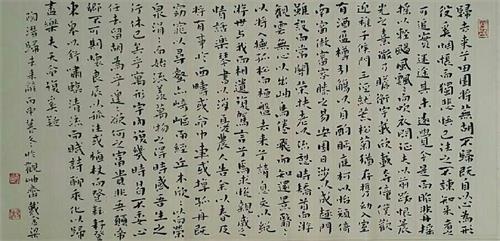 歸去來兮田園將蕪胡不歸既自以心為形
役奚惆悵而獨悲悟已往之不諫知來者之
可追實迷途其未遠覺今是而昨非舟搖
搖以輕颺風飄飄而吹衣問征夫以前路恨晨
光之熹微乃瞻衡宇載欣載奔僮僕歡
迎稚子候門三徑就荒松菊猶存攜幼入室
有酒盈樽引壺觴以自酌眄庭柯以怡顏倚
南窗以寄傲審容膝之易安園日涉以成趣門
雖設而常關策扶老以流憩時矯首而遐
觀雲無心以出岫鳥倦飛而知還景翳翳
以將入撫孤松而盤桓歸去來兮請息交以絕
游世與我而相遺復駕言兮焉求悅親戚
之情話樂琴書以消憂農人告余以春及
將有事於西疇或命巾車或棹孤舟既
窈窕以尋壑亦崎嶇而經丘木欣欣以向榮
泉涓涓而始流善萬物之得時感吾生之
行休已矣乎寓形宇內復幾時曷不委心
任去留胡為乎遑遑欲何之富貴非吾願帝
鄉不可期懷良辰以孤往或植杖而耘耔登
東皋以舒嘯臨清流而賦詩聊乘化以歸
盡樂夫天命復奚疑
陶潛歸去來辭冬於觀岫齋戴梁